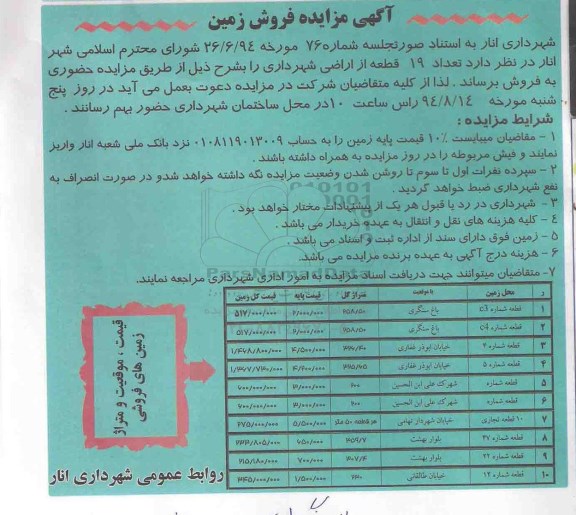 آگهی مزایده فروش زمین
شهرداری انار به استناد صورتجلسه شماره ۷۶ مورخه ۲۶/۶/۹۴ شورای محترم اسلامی شهر
انار در نظر دارد تعداد ۱۹ قطعه از اراضی شهرداری را بشرح ذیل از طریق مزایده حضوری
به فروش برساند . لذا از کلیه متقاضیان شرکت در مزایده دعوت بعمل می آید در روز پنج
شنبه مورخه ۹۴/۸/۱۴ راس ساعت ۱۰ در محل ساختمان شهرداری حضور بهم رسانند .
شرایط مزایده :
۱ - مقاضیان میبایست ۱۰٪ قیمت پایه زمین را به حساب ۰۱۰۸۱۱۹۰۱۳۰۰۹ نزد بانک ملی شعبه انار واریز
نمایند و فیش مربوطه را در روز مزایده به همراه داشته باشند .
۲ - سپرده نفرات اول تا سوم تا روشن شدن وضعیت مزایده نگه داشته خواهد شدو در صورت انصراف به
نفع شهرداری ضبط خواهد گردید .
۳ - شهرداری در رد یا قبول هر یک از پیشنهادات مختار خواهد بود .
۴ - کلیه هزینه های نقل و انتقال به عهده خریدار می باشد .
۵ - زمین فوق دارای سند از اداره ثبت و اسناد می باشد .
۶ - هزینه درج آگهی به عهده برنده مزایده می باشد.
۷- متقاضیان میتوانند جهت دریافت اسناد مزایده به امور اداری شهرداری مراجعه نمایند.
ر محل زمین با موقعیت متراژ کل قیمت پایه قیمت کل زمین
۱ قطعه شماره c.3 باغ سنگری ۲۵۸/۵۰ ۲/۰۰۰/۰۰۰ ۵۱۷/۰۰۰/۰۰۰
۲ قطعه شماره c.4 باغ سنگری ۲۵۸/۵۰ ۲/۰۰۰/۰۰۰ ۵۱۷/۰۰۰/۰۰۰
۳ قطعه شماره خیابان ابوذر غفاری ۴/۵۰۰/۰۰۰
۴ قطعه شماره ۵ خیابان ابوذر غفاری
۵ قطعه شماره شهرک علی ابن الحسین ۲۰۰
۶ قطعه شماره شهرک علی ابن الحسین ۲۰۰
۷ ۱۰ قطعه تجاری خیابان شهردار تهامی هر قطعه ۵۰ متر ۵/۵۰۰/۰۰۰ ۲۷۵/۰۰۰/۰۰۰
۸ قطعه شماره ۴۷ بلوار بهشت ۳۵۹/۷ ۶۵۰/۰۰۰ ۲۳۳/۸۰۵/۰۰۰
۹ قطعه شماره ۲۲ بلوار بهشت ۳۰۷/۴ ۷۰۰/۰۰۰ ۲۱۵/۱۸۰/۰۰۰
۱۰ قطعه شماره ۱۴ خیابان طالقانی ۲۳۰ ۱/۵۰۰/۰۰۰ ۳۴۵/۰۰۰/۰۰۰
قیمت ، موقعیت و متراژ
زمین های فروشی
روابط عمومی شهرداری انار